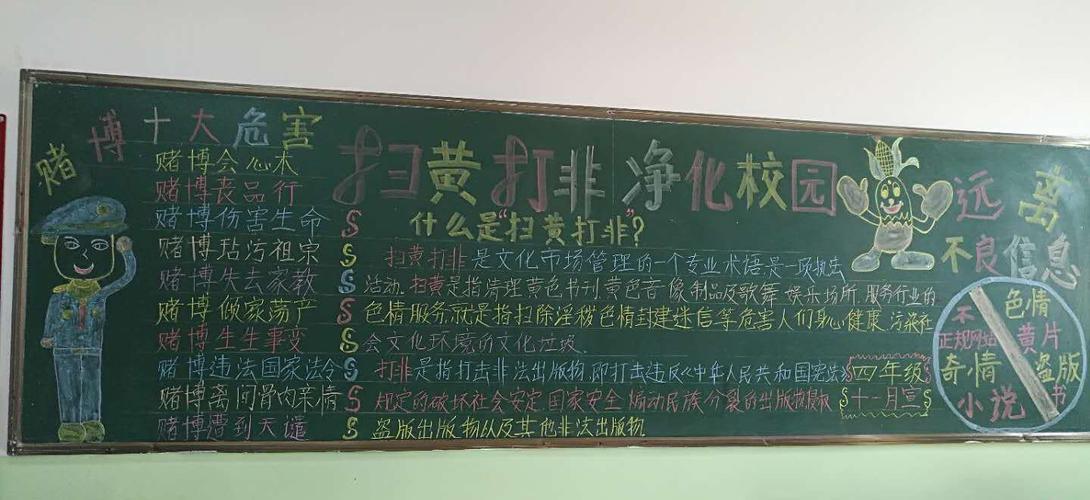 赌博十大危害
赌博会心术
赌博丧品行
赌博伤害生命
赌博玷污祖宗
赌博失去家教
赌博倾家荡产
赌博生生事变
赌博违法国家法令
赌博离间骨肉亲情
赌博遭到天谴
扫黄打非 净化校园
什么是"扫黄打非"?
扫黄打非是文化市场管理的一个专业术语.是一项执法
活动.扫黄是指清理黄色书刊黄色音像制品及歌舞娱乐场所.服务行业的
色情服务.就是指扫除淫秽色情封建迷信等危害人们身心健康.污染社
会文化环境的文化垃圾.
打非是指打击非法出版物.即打击违反《中华人民共和国宪法》
规定的破坏社会安定.国家安全.煽动民族分裂的出版物
盗版出版物以及其他非法出版物
四年级
十一月宣
远离
不良信息
色情
不
正规网站
黄片
奇情
盗版
小说
书